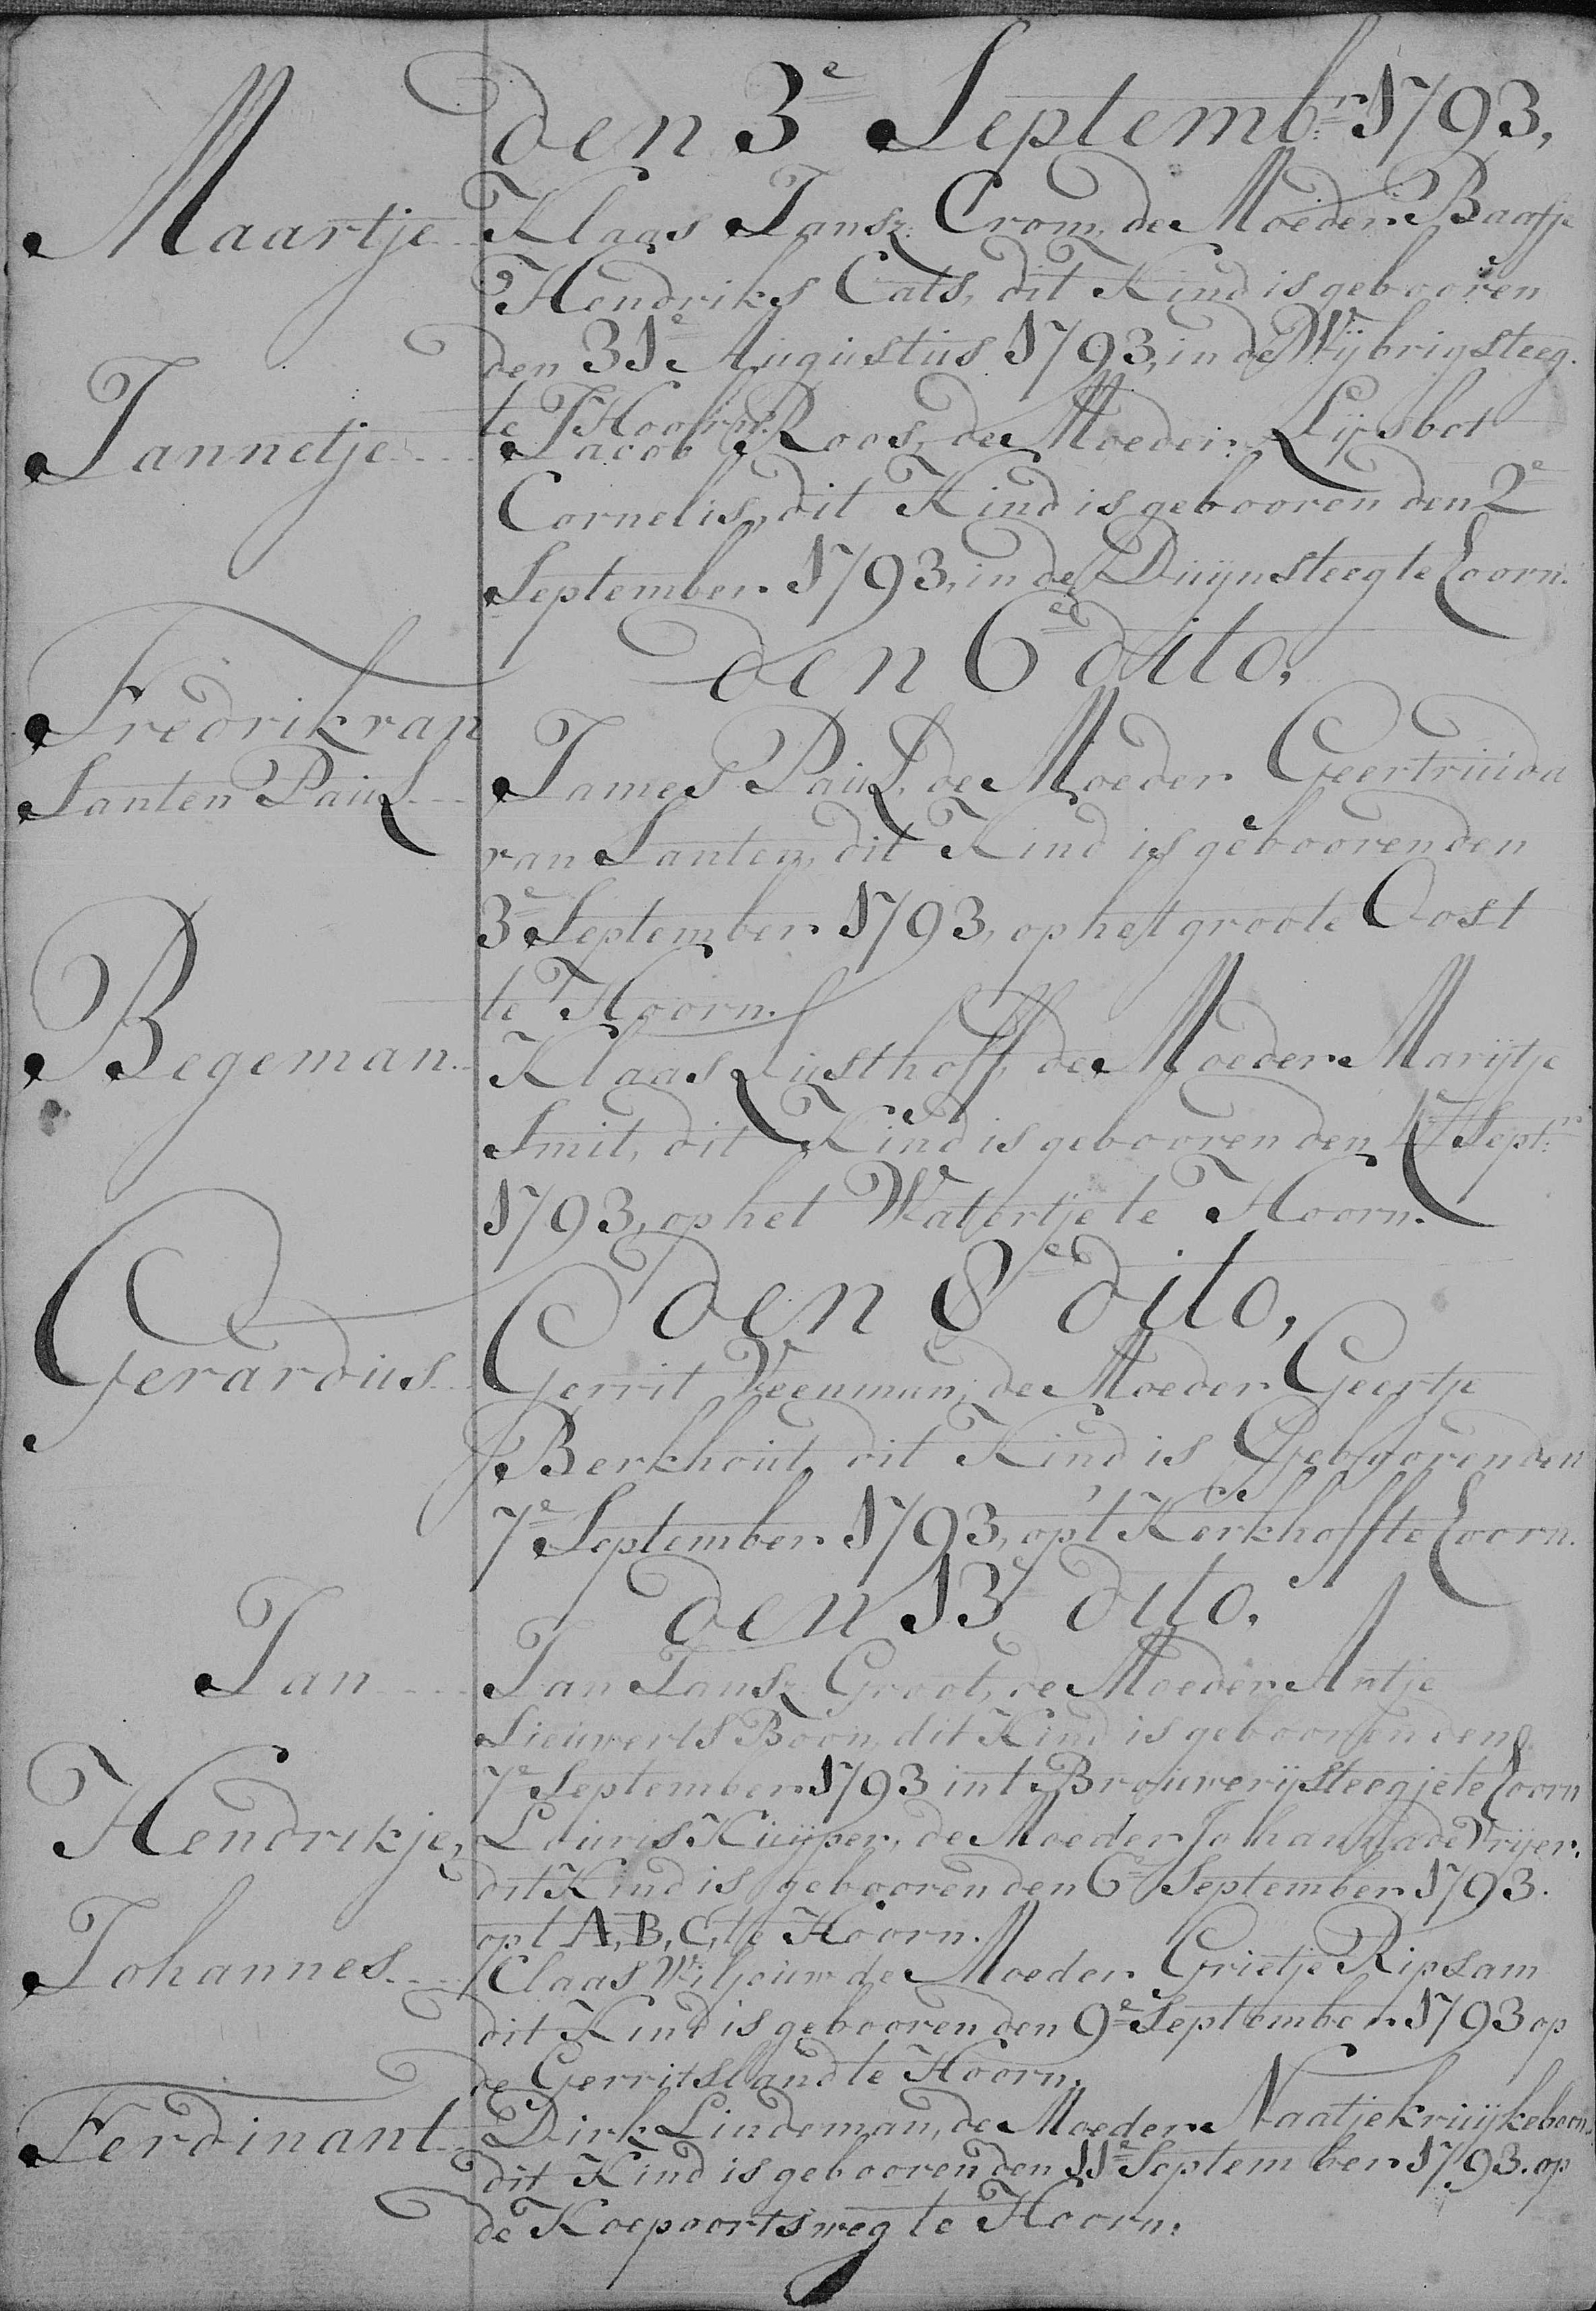 den 3e Septembr. 1793,
Maartje Klaas Jansz. Crom, de Moeder Baatje
Hendriks Cats, dit Kind is gebooren
den 31e Augustus 1793, in de Wijbrigsteeg.
te Hoorn.
Jannetje Jacob Roos, de Moeder Lijsbet
Cornelis, dit Kind is gebooren den 2e
September 1793, in de Duijnsteeg te Hoorn.
den 6e dito,
Fredrik van
Santen Paul James Paul, de Moeder Geertruida
van Santen, dit Kind is gebooren den
3e September 1793, op het groote Oost
te Hoorn.
Begeman Klaas Lusthoff, de Moeder Marijtje
Smit, dit Kind is gebooren den 4e Septr.
1793, op het Watertje te Hoorn.
den 8e dito,
Gerardus Gerrit Veenman, de Moeder Geertje
Berkhout, dit Kind is Gebooren den
7e September 1793, op 't Kerkhoff te Hoorn.
den 13e dito.
Jan Jan Jansz. Groot, de Moeder Antje
Lieuwerts Boon, dit Kind is gebooren den
7e September 1793 in t Brouwerijsteegje te Hoorn
Hendrikje, Louris Kuijper, de Moeder Johanna de Vrijer.
dit Kind is gebooren den 6e September 1793.
op t A, B, C, te Hoorn.
Johannes Claas de Moeder Grietje Ripsam
dit Kind is gebooren den 9e September 1793 op
de Gerritsland te Hoorn.
Ferdinant Dirk Lindeman, de Moeder Naatje Kruijkeboom,
dit Kind is gebooren den 11e September 1793. op
de Koepoortsweg te Hoorn.